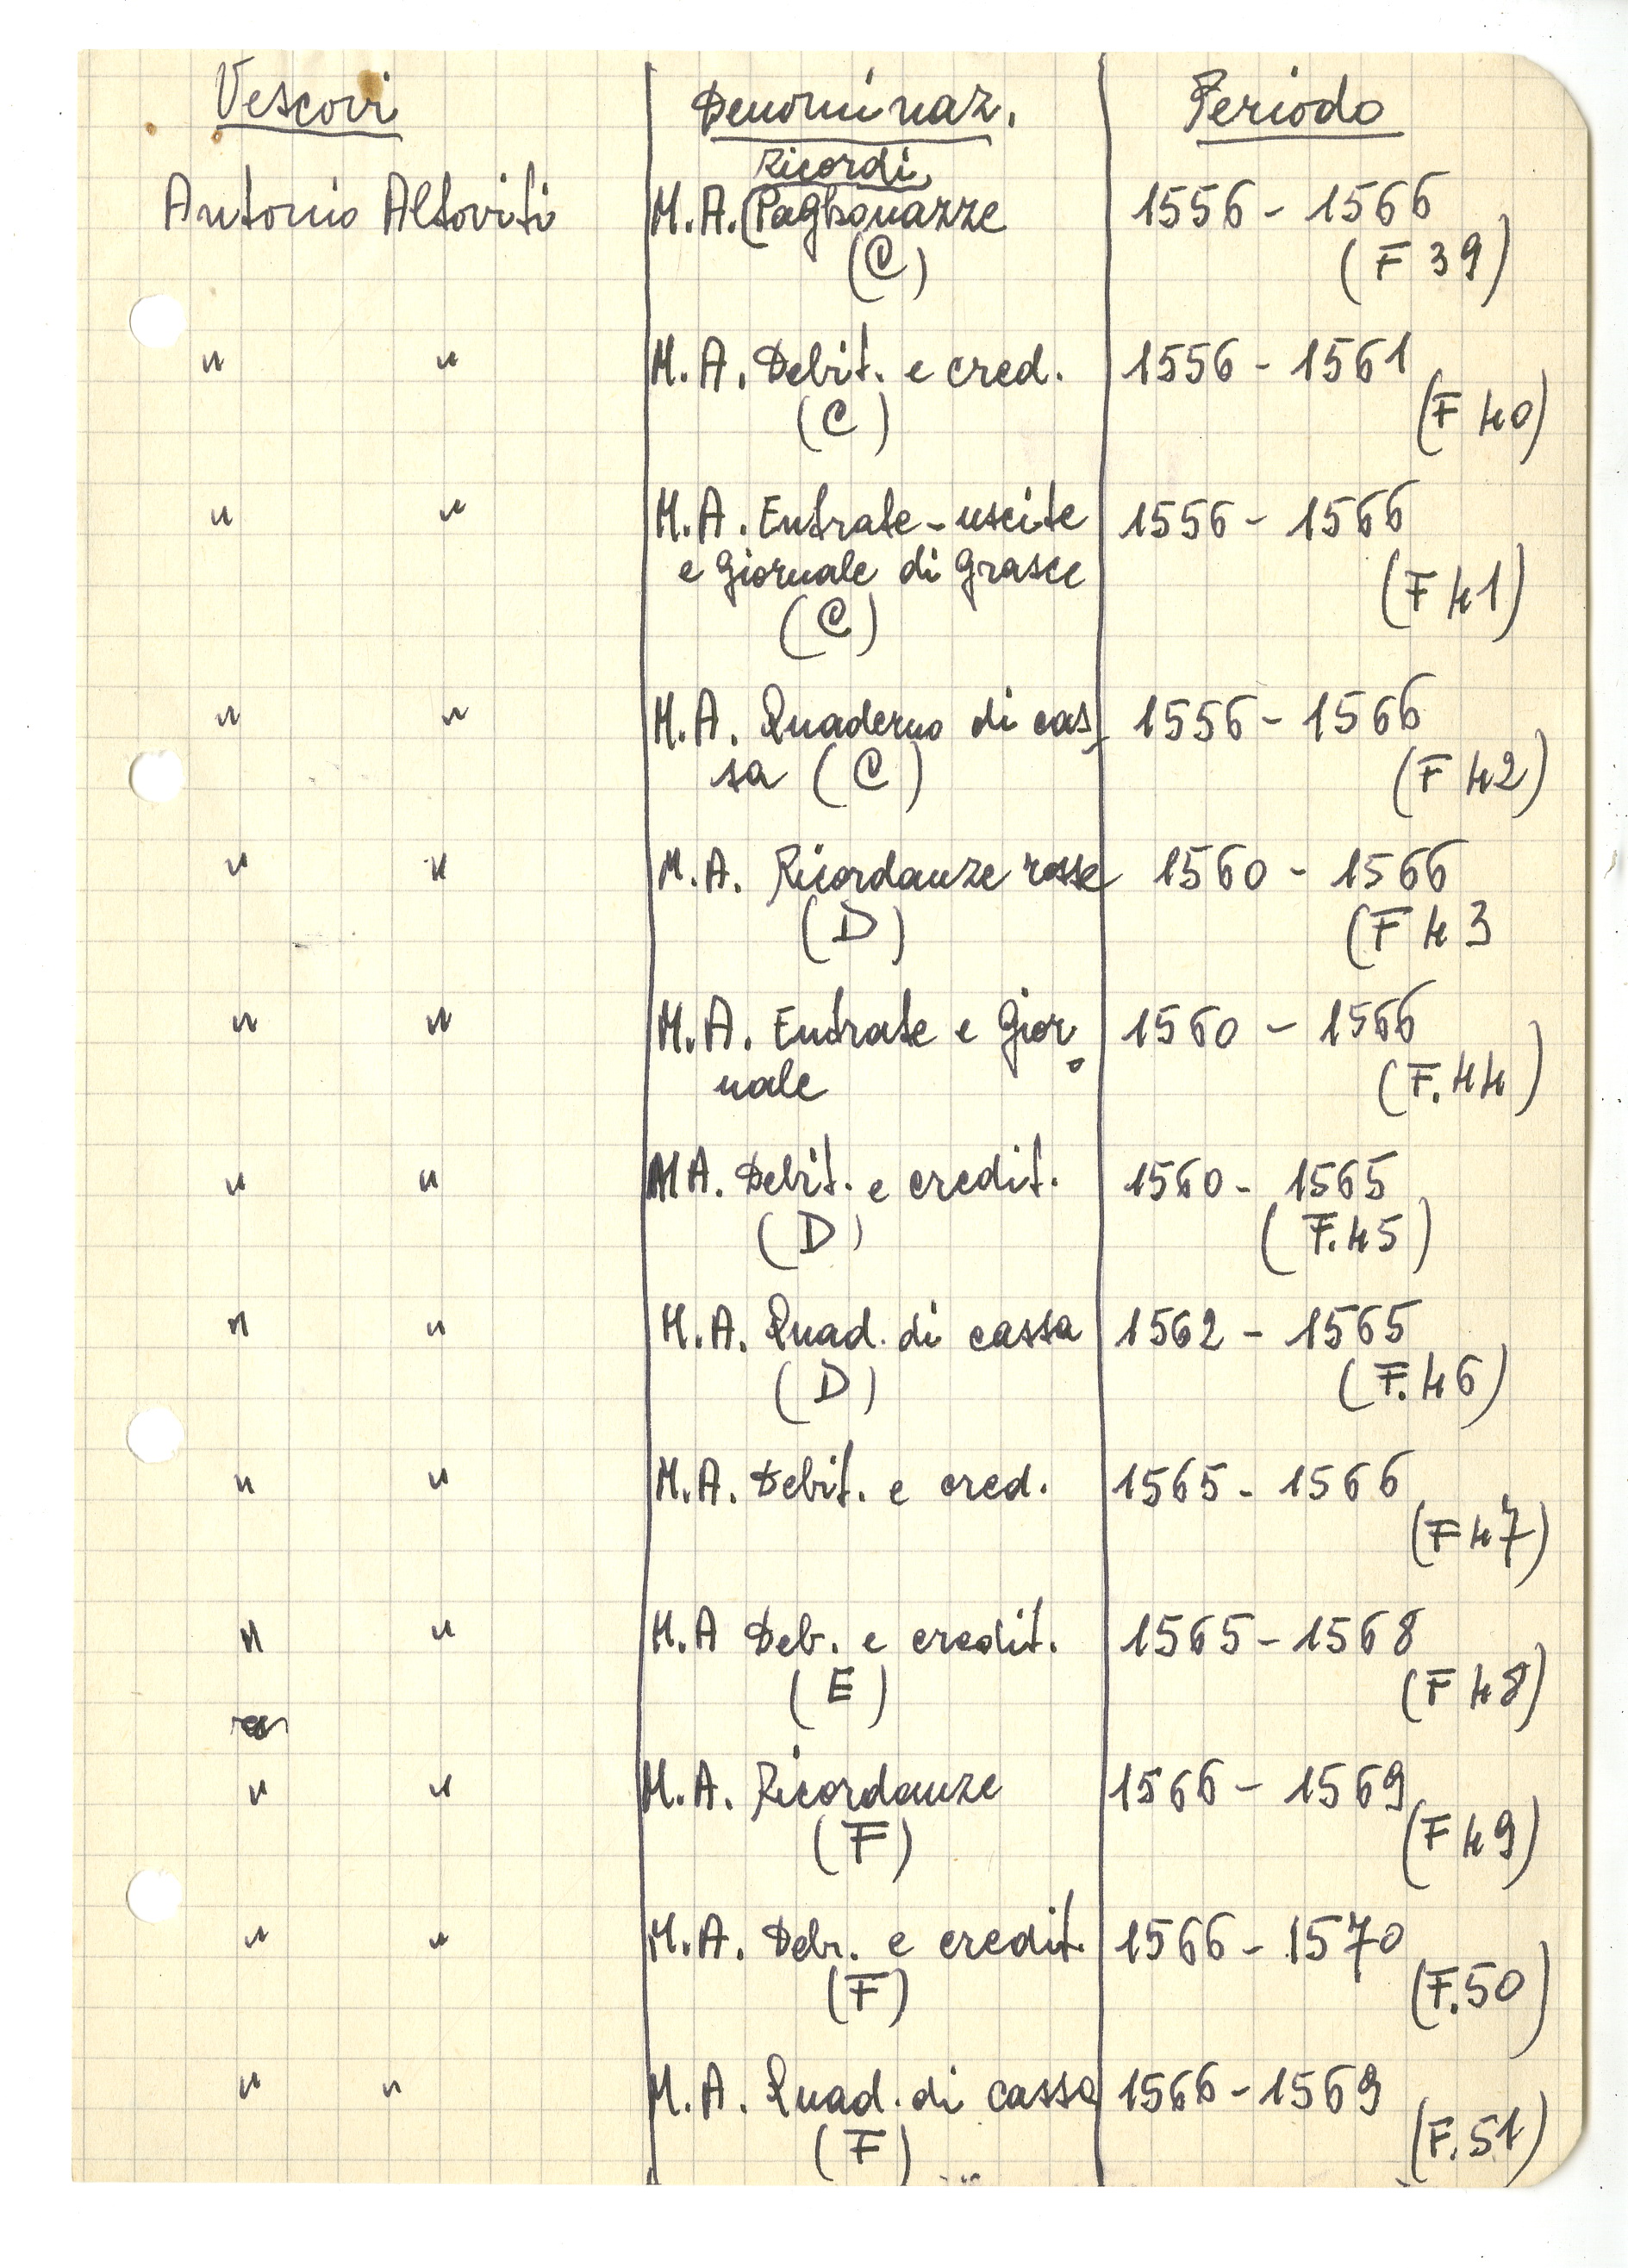 Vescovi Denominaz. Periodo
Ricordi,
Antonio Altoviti M.A. (Paghonazze 1556 - 1566
(C) (F 39)
" " M.A. Debit. e cred. 1556 - 1561
(C) (F 40)
" " M.A. Entrate - uscite 1556 - 1566
e giornale di grasce (F 41)
(C)
" " M.A. Quaderno di cas- 1556 - 1566
sa (C) (F 42)
" " M.A. Ricordanze rosse 1560 - 1566
(D) (F 43
" " M.A. Entrate e Gior- 1560 - 1566
nale (F. 44)
" " M A. Debit. e credit. 1560 - 1565
(D) (F. 45)
" " M.A. Quad. di cassa 1562 - 1565
(D) (F. 46)
" " M.A. Debit. e cred. 1565 - 1566
(F 47)
" " M.A Deb. e credit. 1565 - 1568
(E) (F 48)
" " M.A. Ricordanze 1566 - 1569
(F) (F 49)
" " M.A. Deb. e credit. 1566 - 1570
(F) (F. 50)
" " M.A. Quad. di cassa 1566 - 1569
(F) (F. 51)